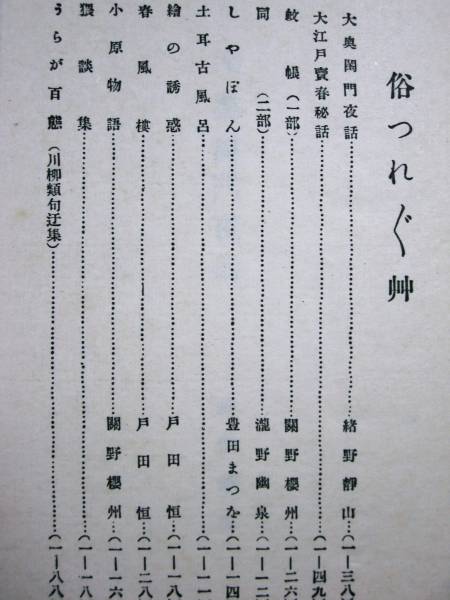 俗つれ〴〵艸
大奥閨門夜話……緒野靜山…(一—三八
大江戸賣春秘話……(一—四九
蚊帳(一部)……關野櫻州…(一—二六
同(二部)……瀧野幽泉…(一—二
しやぼん……豊田まつを…(一—一四
土耳古風呂……(一—一
繪の誘惑……戸田恒…(一—一八
春風樓……戸田恒…(一—二八
小原物語……關野櫻州…(一—一六
猥談集……(一—一八
うらが百態(川柳類句迂集)……(一—八八